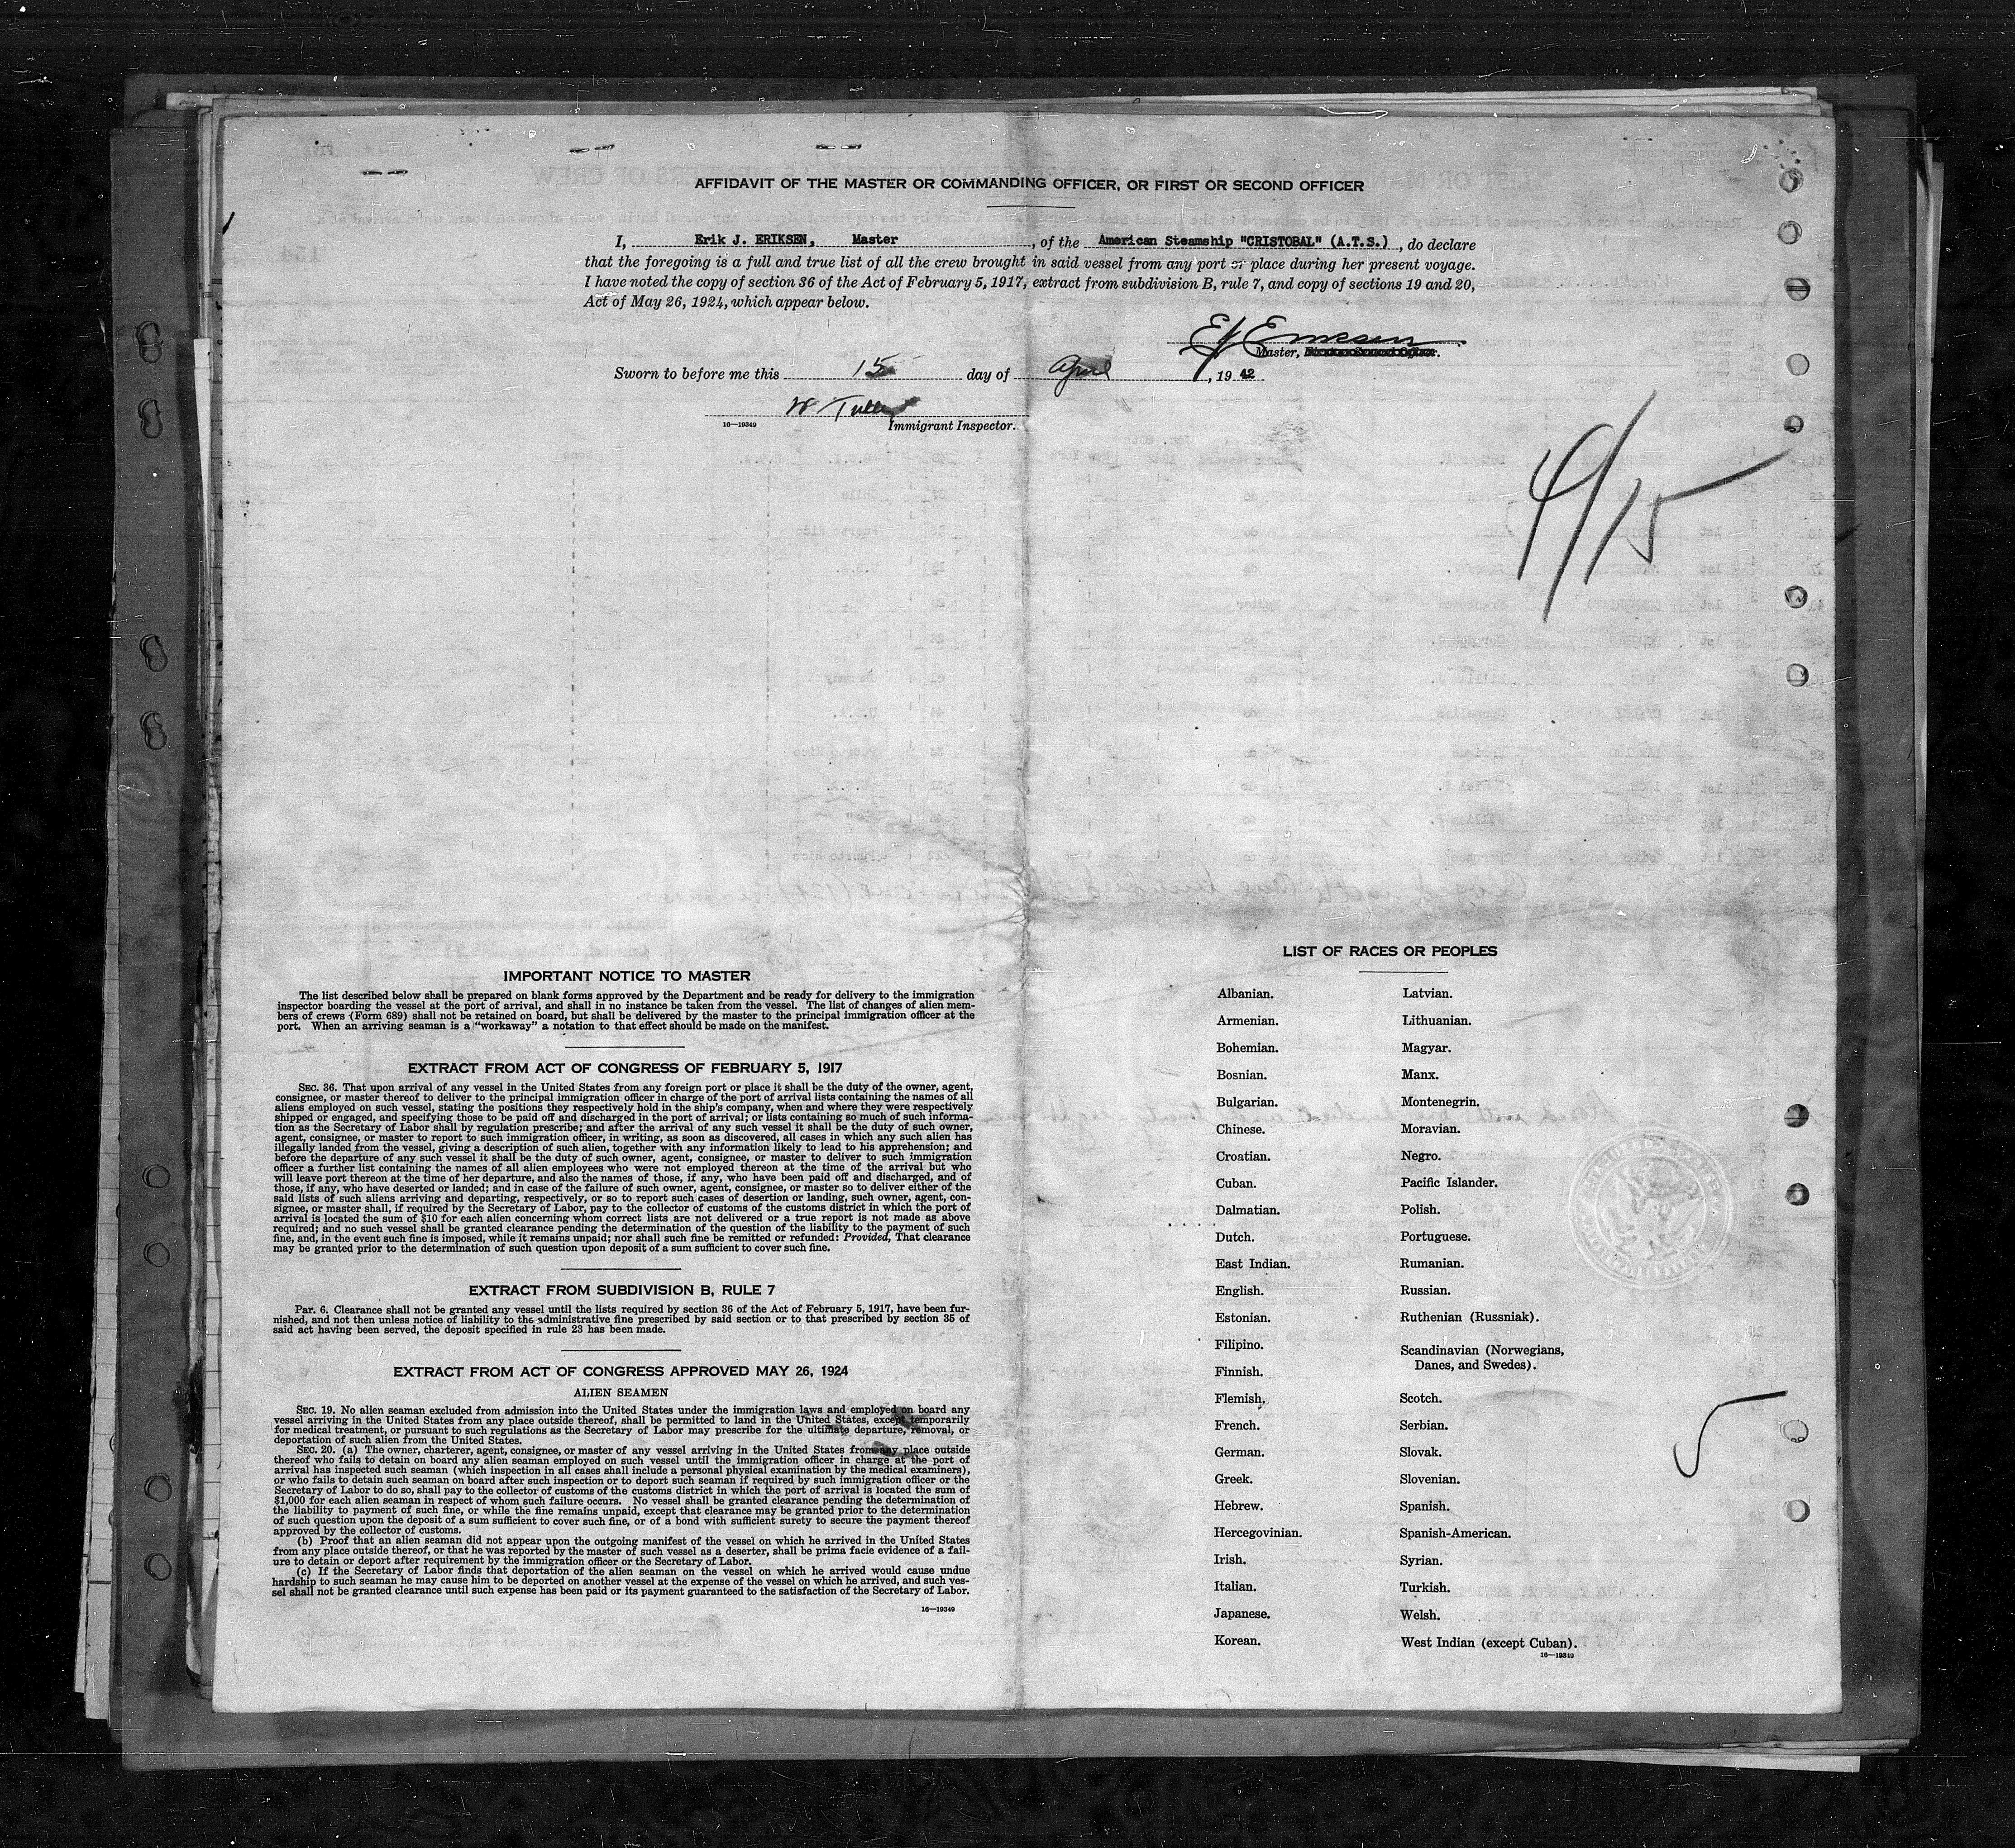 AFFIDAVIT OF THE MASTER OR COMMANDING OFFICER, OR FIRST OR SECOND OFFICER
I, Erik J. ERIKSEN, Master, of the American Steamship "CRISTOBAL" (A.T.S.), do declare
that the foregoing is a full and true list of all the crew brought in said vessel from any port or place during her present voyage.
I have noted the copy of section 36 of the Act of February 5, 1917, extract from subdivision B, rule 7, and copy of sections 19 and 20,
Act of May 26, 1924, which appear below.
EJ Eriksen
Master,
Sworn to before me this 15 day of April, 19 42
W
16—19349 Immigrant Inspector.
4/15
IMPORTANT NOTICE TO MASTER
The list described below shall be prepared on blank forms approved by the Department and be ready for delivery to the immigration
inspector boarding the vessel at the port of arrival, and shall in no instance be taken from the vessel. The list of changes of alien mem-
bers of crews (Form 689) shall not be retained on board, but shall be delivered by the master to the principal immigration officer at the
port. When an arriving seaman is a "workaway" a notation to that effect should be made on the manifest.
EXTRACT FROM ACT OF CONGRESS OF FEBRUARY 5, 1917
SEC. 36. That upon arrival of any vessel in the United States from any foreign port or place it shall be the duty of the owner, agent,
consignee, or master thereof to deliver to the principal immigration officer in charge of the port of arrival lists containing the names of all
aliens employed on such vessel, stating the positions they respectively hold in the ship's company, when and where they were respectively
shipped or engaged, and specifying those to be paid off and discharged in the port of arrival; or lists containing so much of such informa-
tion as the Secretary of Labor shall by regulation prescribe; and after the arrival of any such vessel it shall be the duty of such owner,
agent, consignee, or master to report to such immigration officer, in writing, as soon as discovered, all cases in which any such alien has
illegally landed from the vessel, giving a description of such alien, together with any information likely to lead to his apprehension; and
before the departure of any such vessel it shall be the duty of such owner, agent, consignee, or master to deliver to such immigration
officer a further list containing the names of all alien employees who were not employed thereon at the time of the arrival but who
will leave port thereon at the time of her departure, and also the names of those, if any, who have been paid off and discharged, and of
those, if any, who have deserted or landed; and in case of the failure of such owner, agent, consignee, or master so to deliver either of the
said lists of such aliens arriving and departing, respectively, or so to report such cases of desertion or landing, such owner, agent, con-
signee, or master shall, if required by the Secretary of Labor, pay to the collector of customs of the customs district in which the port of
arrival is located the sum of $10 for each alien concerning whom correct lists are not delivered or a true report is not made as above
required; and no such vessel shall be granted clearance pending the determination of the question of the liability to the payment of such
fine, and, in the event such fine is imposed, while it remains unpaid; nor shall such fine be remitted or refunded: Provided, That clearance
may be granted prior to the determination of such question upon deposit of a sum sufficient to cover such fine.
EXTRACT FROM SUBDIVISION B, RULE 7
Par. 6. Clearance shall not be granted any vessel until the lists required by section 36 of the Act of February 5, 1917, have been fur-
nished, and not then unless notice of liability to the administrative fine prescribed by said section or to that prescribed by section 35 of
said act having been served, the deposit specified in rule 23 has been made.
EXTRACT FROM ACT OF CONGRESS APPROVED MAY 26, 1924
ALIEN SEAMEN
SEC. 19. No alien seaman excluded from admission into the United States under the immigration laws and employed on board any
vessel arriving in the United States from any place outside thereof, shall be permitted to land in the United States, except temporarily
for medical treatment, or pursuant to such regulations as the Secretary of Labor may prescribe for the ultimate departure, removal, or
deportation of such alien from the United States.
SEC. 20. (a) The owner, charterer, agent, consignee, or master of any vessel arriving in the United States from any place outside
thereof who fails to detain on board any alien seaman employed on such vessel until the immigration officer in charge at the port of
arrival has inspected such seaman (which inspection in all cases shall include a personal physical examination by the medical examiners),
or who fails to detain such seaman on board after such inspection or to deport such seaman if required by such immigration officer or the
Secretary of Labor to do so, shall pay to the collector of customs of the customs district in which the port of arrival is located the sum of
$1,000 for each alien seaman in respect of whom such failure occurs. No vessel shall be granted clearance pending the determination of
the liability to payment of such fine, or while the fine remains unpaid, except that clearance may be granted prior to the determination
of such question upon the deposit of a sum sufficient to cover such fine, or of a bond with sufficient surety to secure the payment thereof
approved by the collector of customs.
(b) Proof that an alien seaman did not appear upon the outgoing manifest of the vessel on which he arrived in the United States
from any place outside thereof, or that he was reported by the master of such vessel as a deserter, shall be prima facie evidence of a fail-
ure to detain or deport after requirement by the immigration officer or the Secretary of Labor.
(c) If the Secretary of Labor finds that deportation of the alien seaman on the vessel on which he arrived would cause undue
hardship to such seaman he may cause him to be deported on another vessel at the expense of the vessel on which he arrived, and such ves-
sel shall not be granted clearance until such expense has been paid or its payment guaranteed to the satisfaction of the Secretary of Labor.
16—19349
LIST OF RACES OR PEOPLES
Albanian. Latvian.
Armenian. Lithuanian.
Bohemian. Magyar.
Bosnian. Manx.
Bulgarian. Montenegrin.
Chinese. Moravian.
Croatian. Negro.
Cuban. Pacific Islander.
Dalmatian. Polish.
Dutch. Portuguese.
East Indian. Rumanian.
English. Russian.
Estonian. Ruthenian (Russniak).
Filipino. Scandinavian (Norwegians,
Danes, and Swedes).
Finnish.
Flemish. Scotch.
French. Serbian.
German. Slovak.
Greek. Slovenian.
Hebrew. Spanish.
Hercegovinian. Spanish-American.
Irish. Syrian.
Italian. Turkish.
Japanese. Welsh.
Korean. West Indian (except Cuban).
16—19349